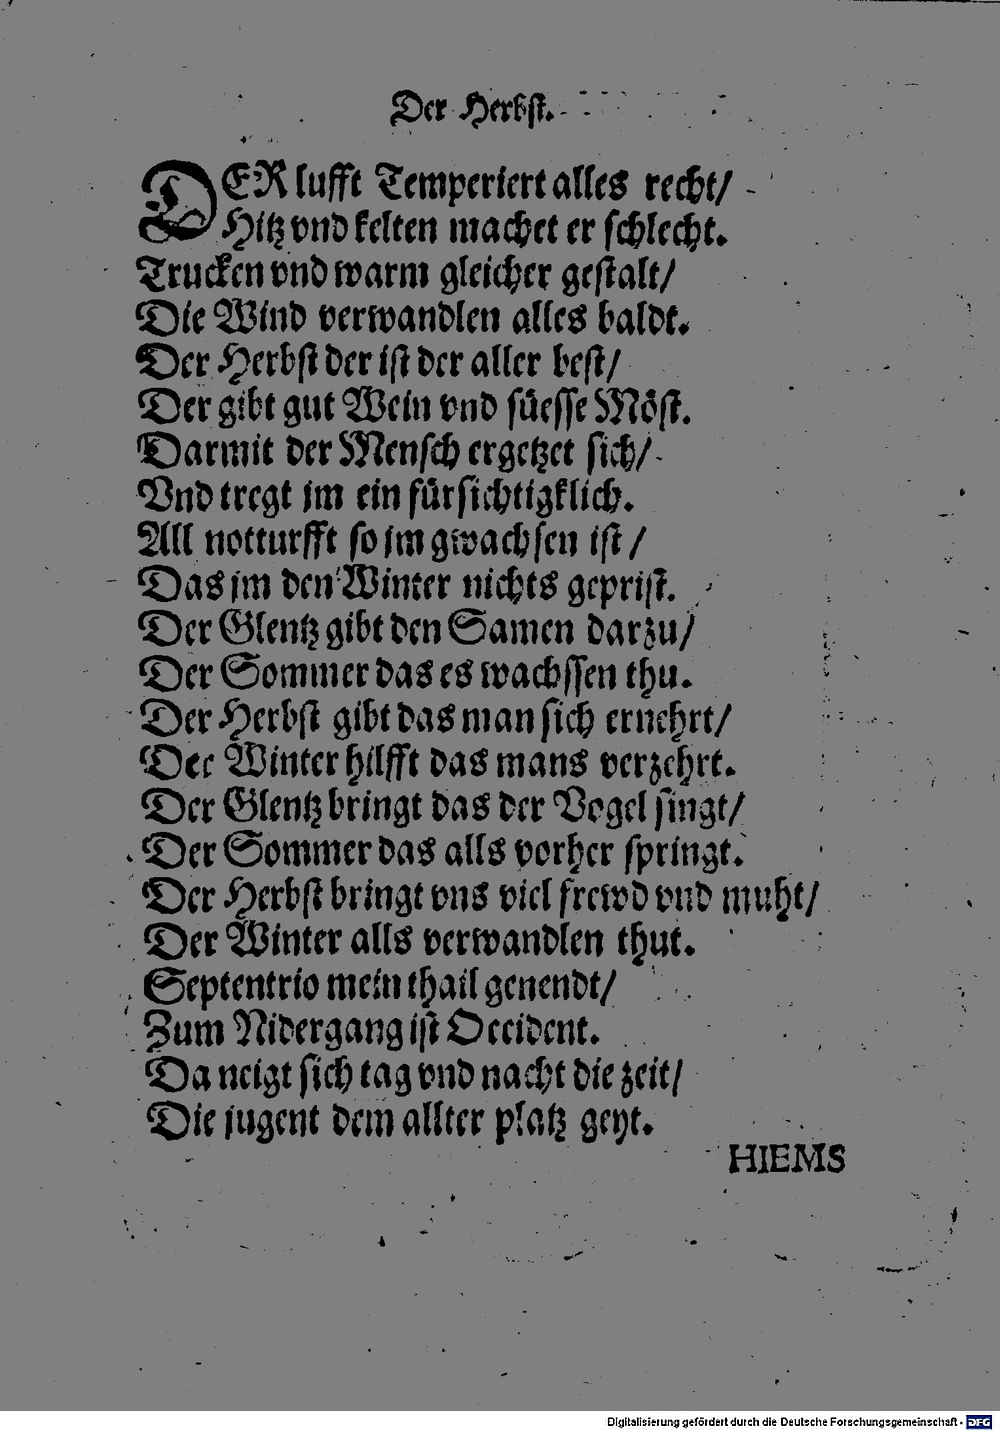 Der Herbst.
DER lufft Temperiert alles recht/
Hitz vnd kelten machet er schlecht.
Trucken vnd warm gleicher gestalt/
Die Wind verwandlen alles baldt.
Der Herbst der ist der aller best/
Der gibt gut Wein vnd süesse Möst.
Darmit der Mensch ergetzet sich/
Vnd tregt jm ein fürsichtigklich.
All notturfft so jm gwachsen ist/
Das jm den Winter nichts geprist.
Der Glentz gibt den Samen darzu/
Der Sommer das es wachssen thu.
Der Herbst gibt das man sich ernehrt/
Der Winter hilfft das mans verzehrt.
Der Glentz bringt das der Vogel singt/
Der Sommer das alls vorher springt.
Der Herbst bringt vns viel frewd vnd muht/
Der Winter alls verwandlen thut.
Septentrio mein thail genendt/
Zum Nidergang ist Occident.
Da neigt sich tag vnd nacht die zeit/
Die jugent dem allter platz geyt.
HIEMS
Digitalisierung gefördert durch die Deutsche Forschungsgemeinschaft - DFG